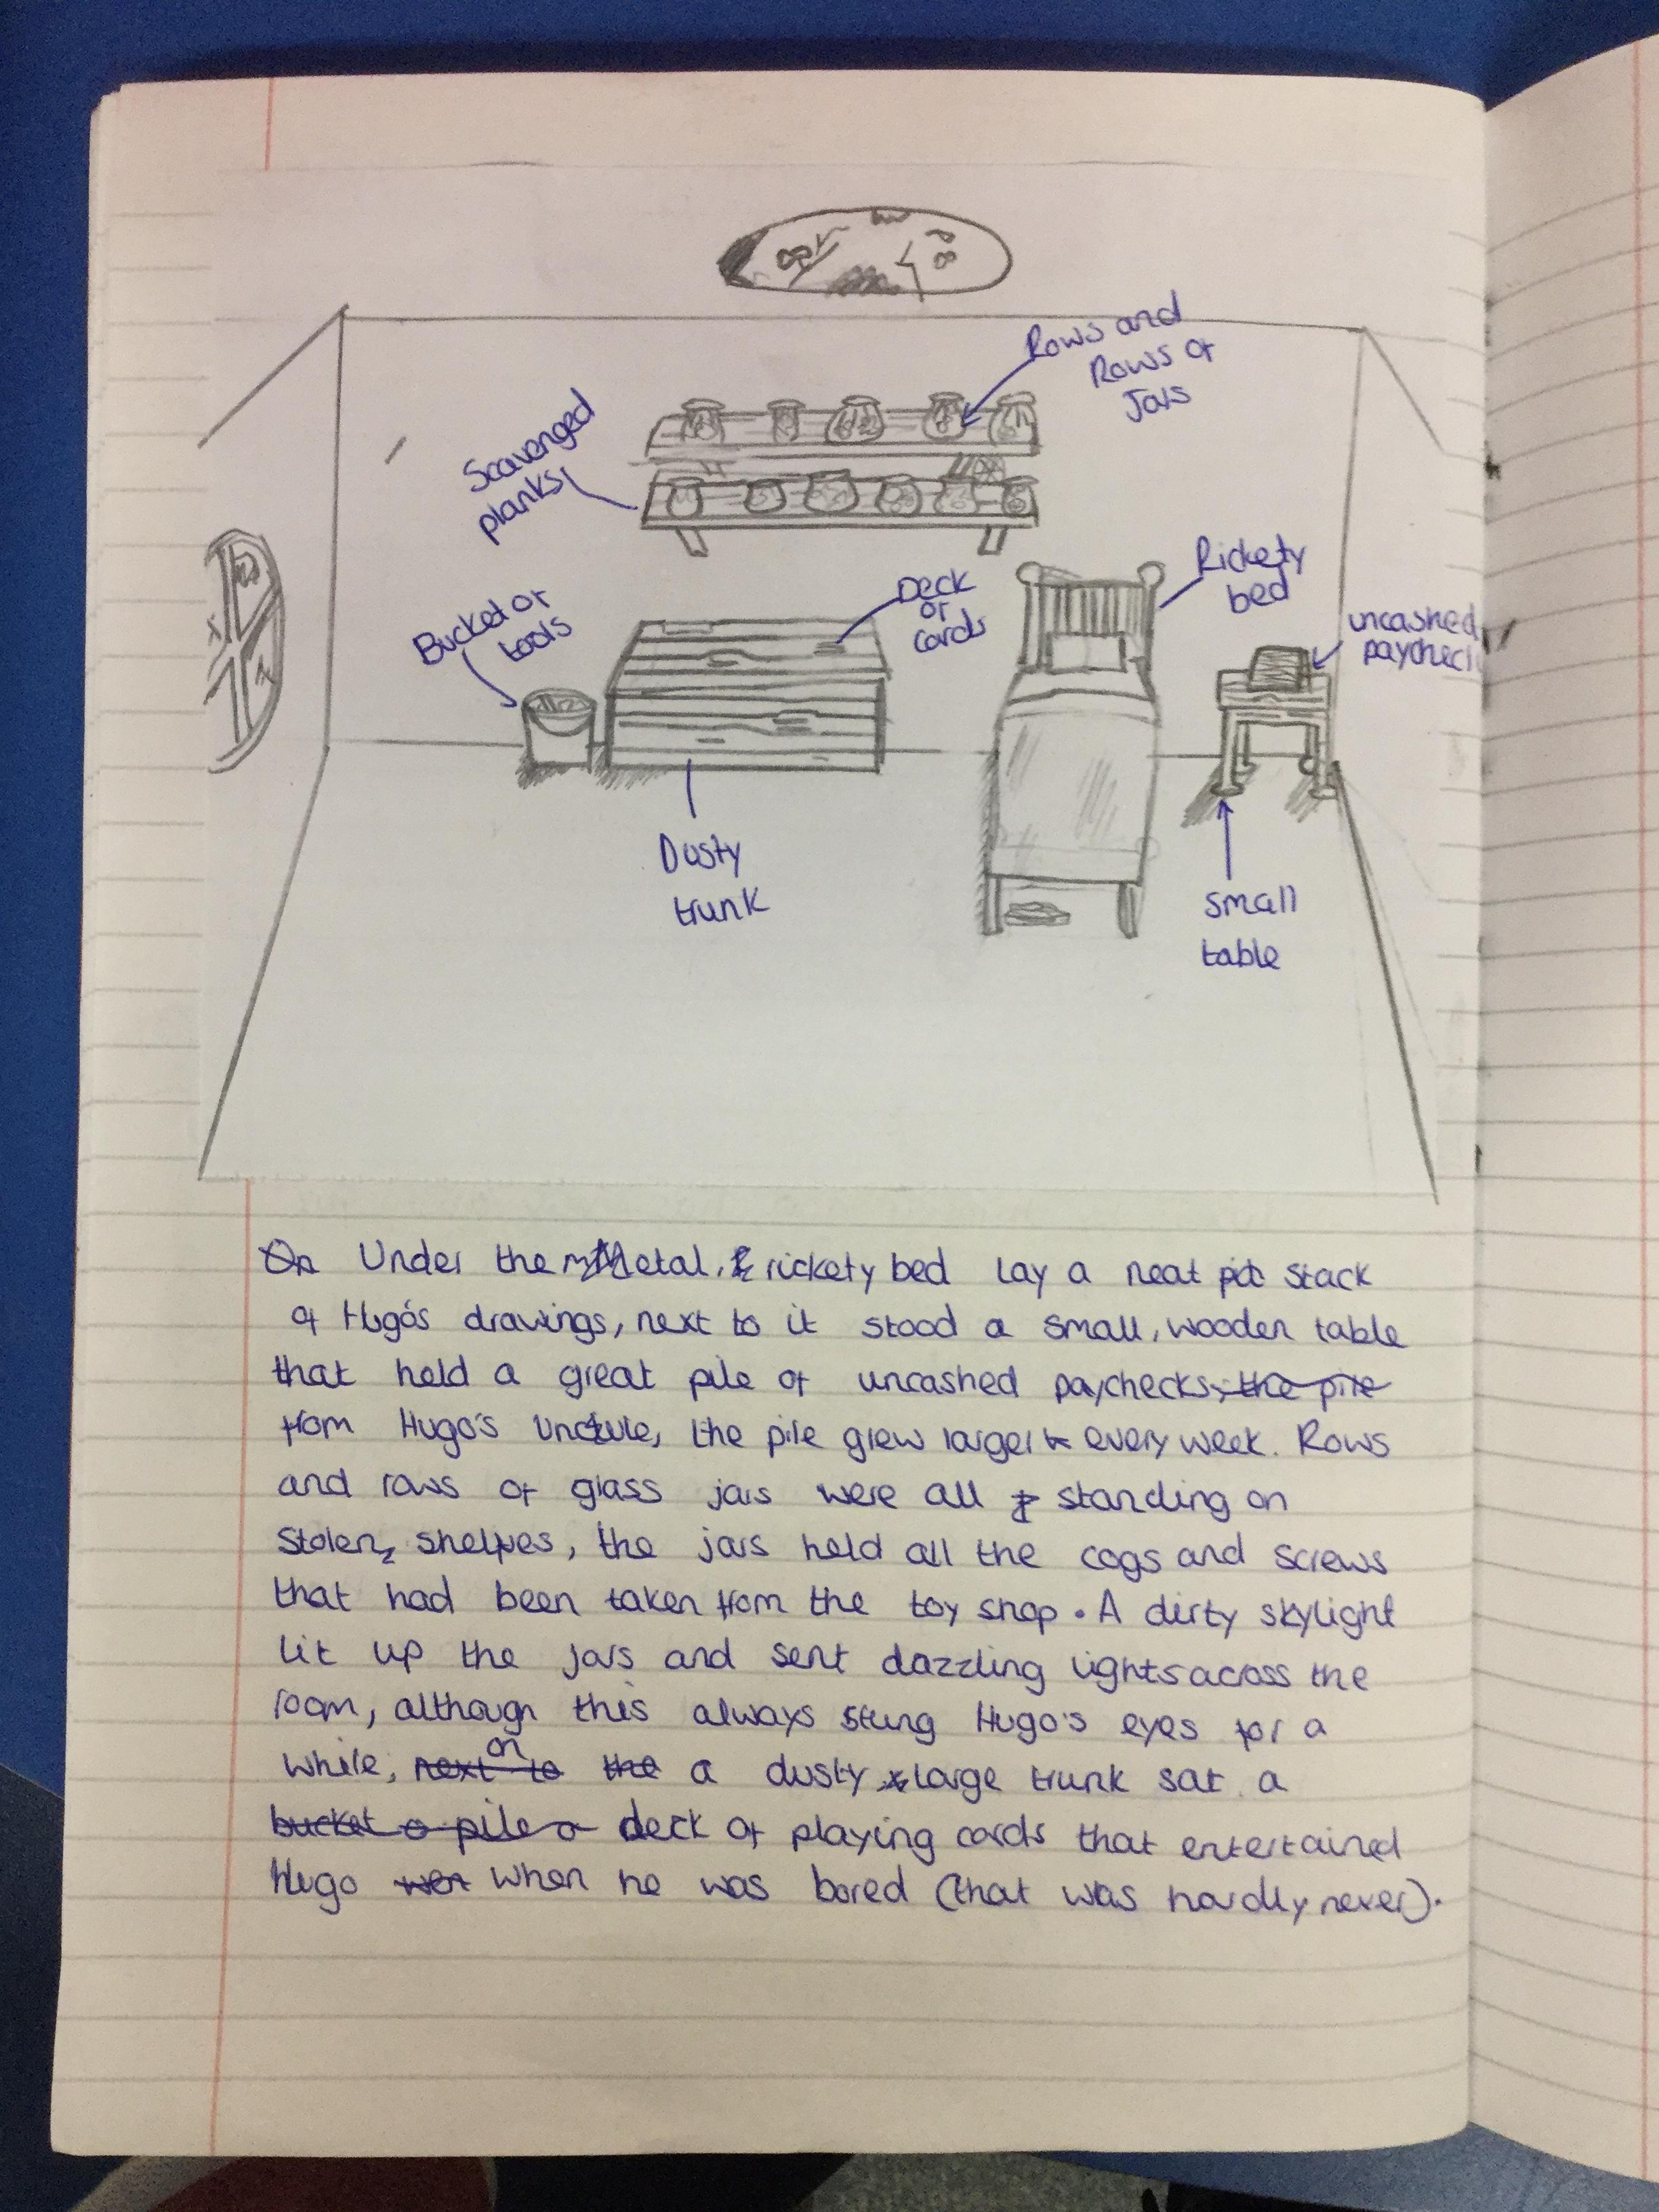 Rows and
Rows of
Jars
Scavenged
planks
Bucket of
tools
Deck
of
cards
Rickety
bed
uncashed
Dusty
trunk
small
table
On Under the Metal, rickety bed lay a neat stack
of Hugo's drawings, next to it stood a small, wooden table
that held a great pile of uncashed paychecks, the pile
from Hugo's Uncle, the pile grew larger every week. Rows
and rows of glass jars were all standing on
Stolen, shelves, the jars held all the cogs and screws
that had been taken from the toy shop. A dirty skylight
lit up the jars and sent dazzling lights across the
room, although this always stung Hugo's eyes for a
while, next to on the a dusty, large trunk sat a
bucket o pile o deck of playing cards that entertained
Hugo when he was bored (that was hardly never).